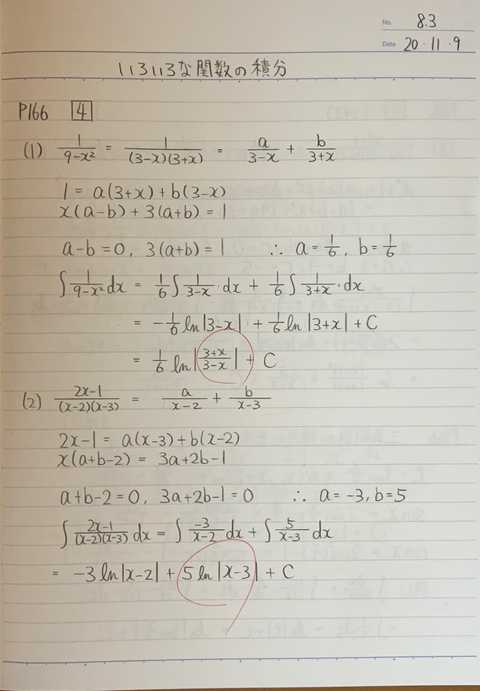 No. 8.3
Date 20・11・9
いろいろな関数の積分
P166 4
(1) 1/(9-x²) = 1/((3-x)(3+x)) = a/(3-x) + b/(3+x)
1 = a(3+x) + b(3-x)
x(a-b) + 3(a+b) = 1
a-b = 0, 3(a+b) = 1 ∴ a = 1/6, b = 1/6
∫ 1/(9-x²) dx = 1/6 ∫ 1/(3-x) ・dx + 1/6 ∫ 1/(3+x) ・dx
= -1/6 ln|3-x| + 1/6 ln|3+x| + C
= 1/6 ln|(3+x)/(3-x)| + C
(2) (2x-1)/((x-2)(x-3)) = a/(x-2) + b/(x-3)
2x-1 = a(x-3) + b(x-2)
x(a+b-2) = 3a+2b-1
a+b-2 = 0, 3a+2b-1 = 0 ∴ a = -3, b = 5
∫ (2x-1)/((x-2)(x-3)) dx = ∫ -3/(x-2) dx + ∫ 5/(x-3) dx
= -3 ln|x-2| + 5 ln|x-3| + C